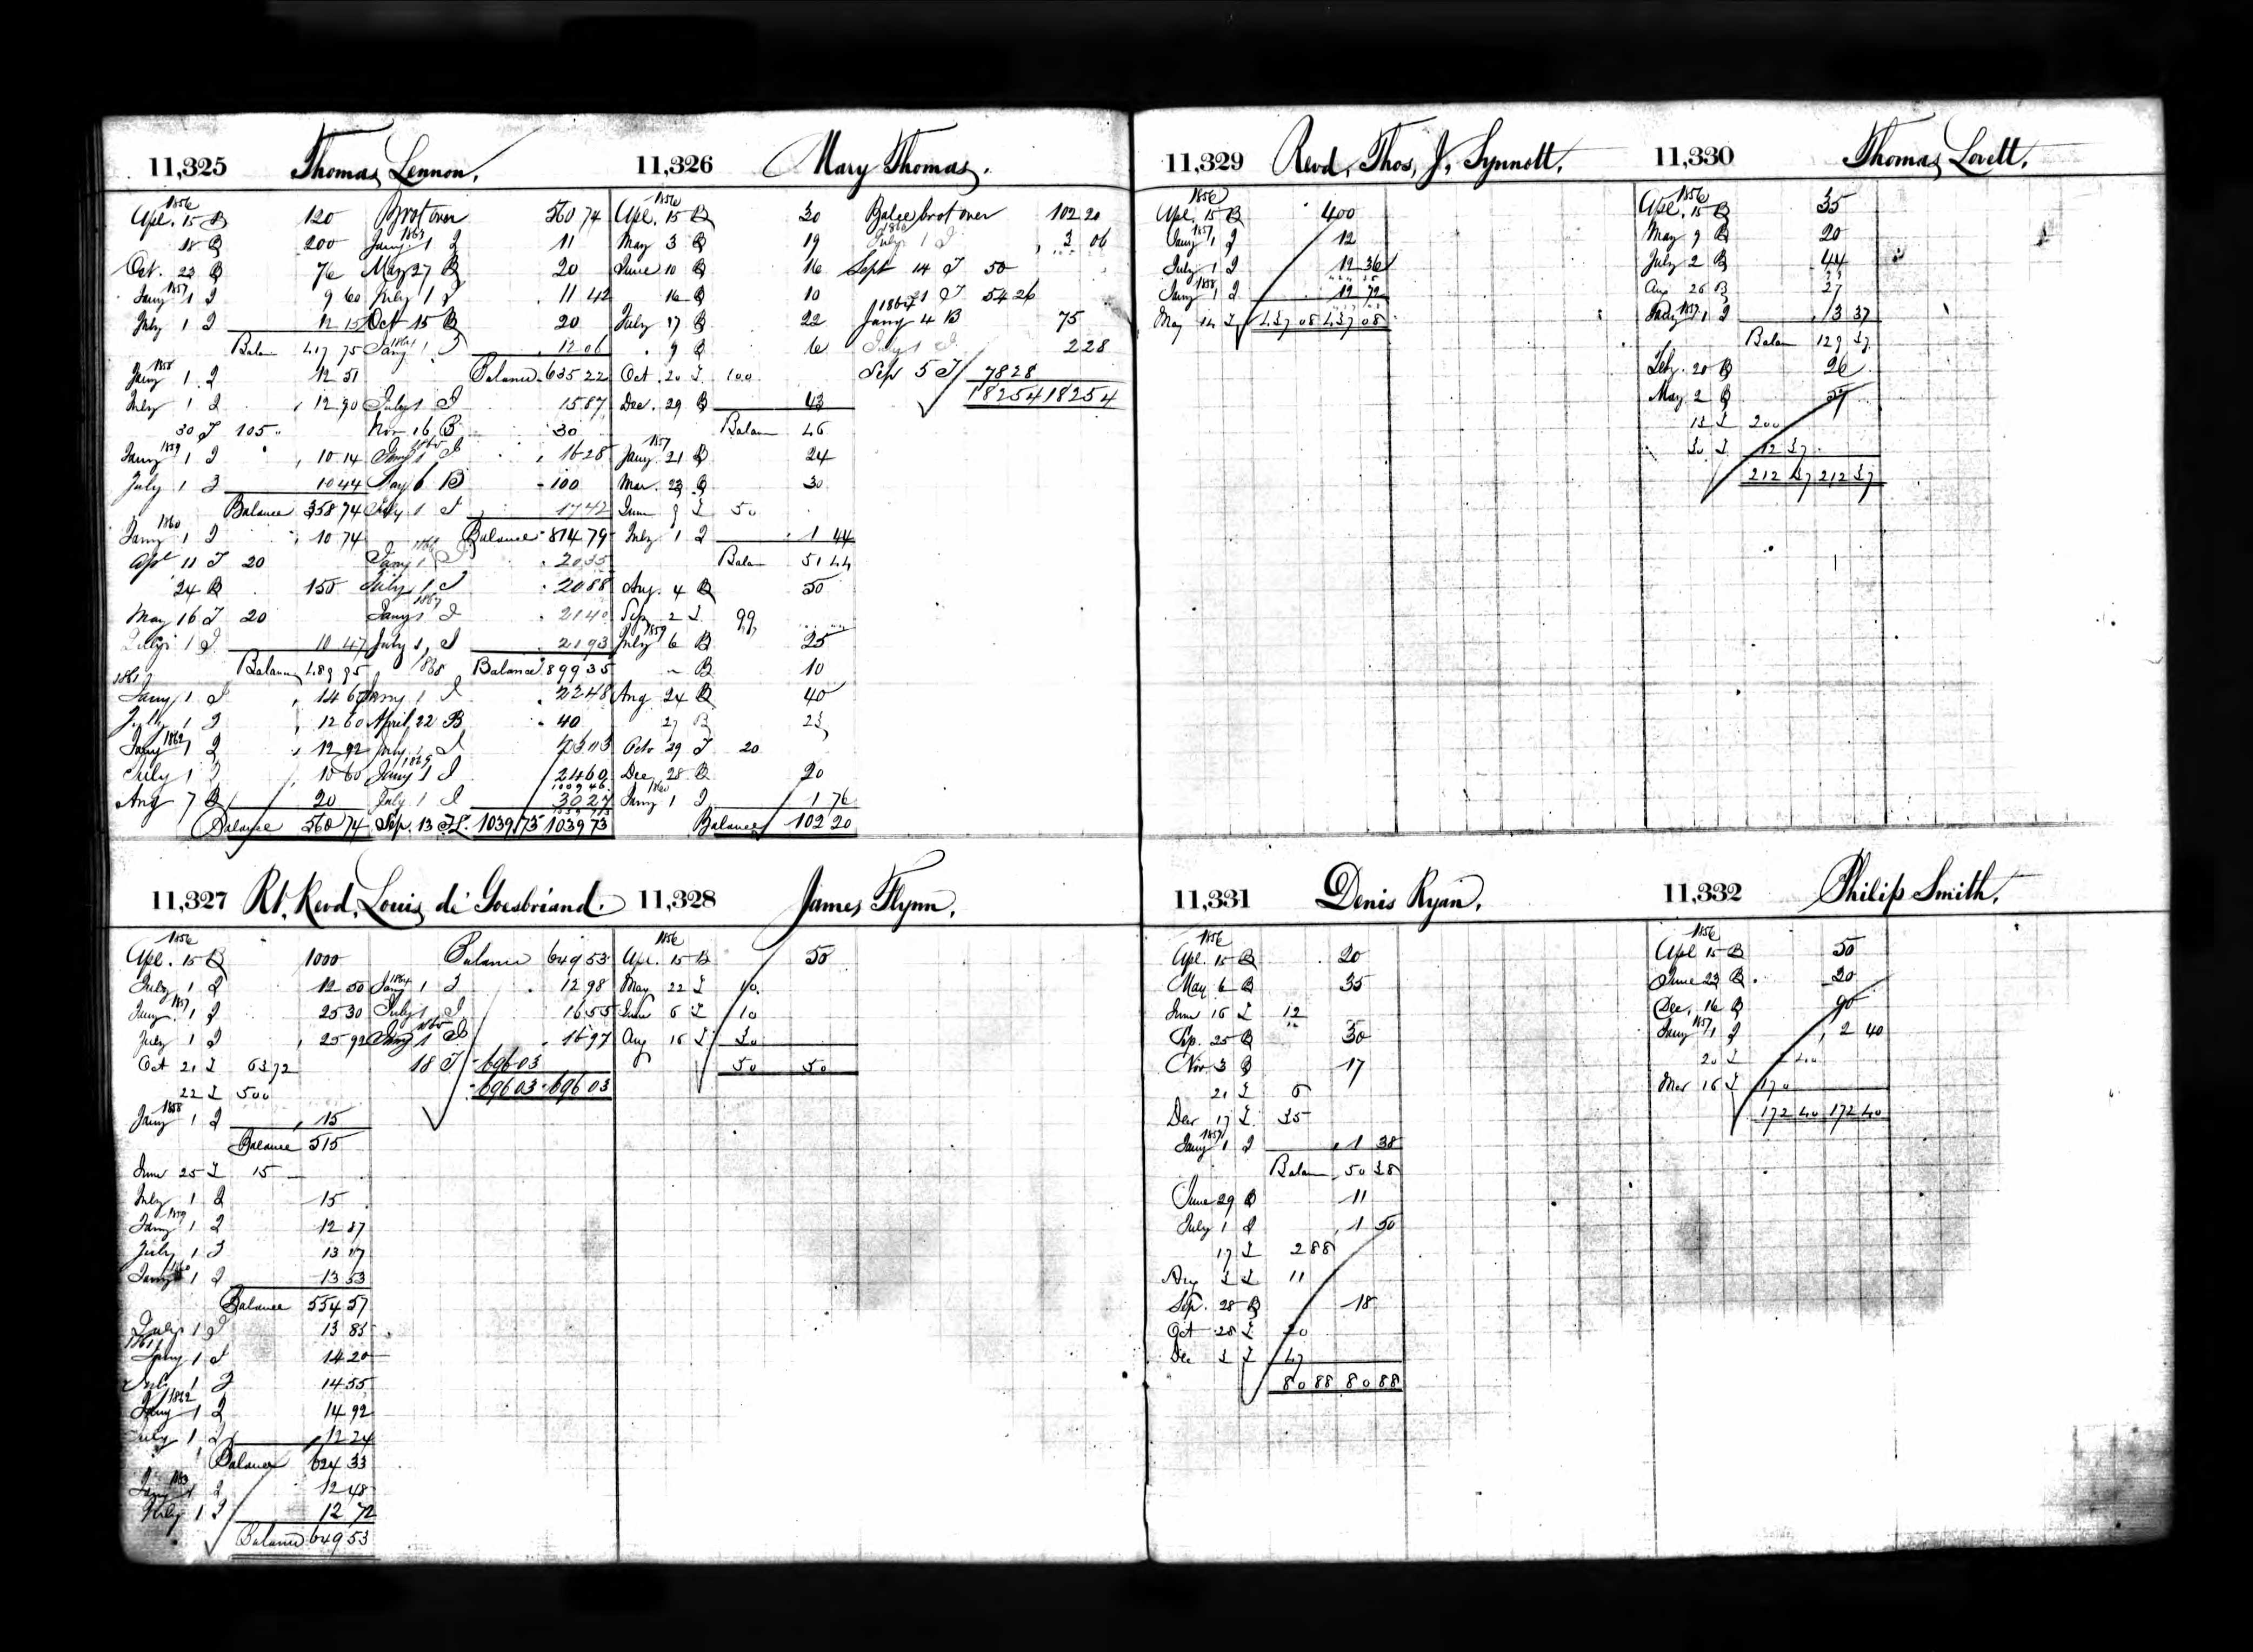 11,325 Thomas Lennon.
1856
Apl. 15 B 120
18 B 200
Oct. 23 B 76
1857
Jany 1 I 9 60
July 1 I 12 15
Balan 417 75
1858
Jany 1 I 12 51
July 1 I 12 90
30 I 105
1859
Jany 1 I 10 14
July 1 I 10 44
Balance 358 74
1860
Jany 1 I 10 74
Apl 11 I 20
24 B 150
May 16 I 20
July 1 I 10 47
Balance 489 95
1861
Jany 1 I 14 67
July 1 I 12 60
1862
Jany 1 I 12 92
July 1 I 10 60
Aug 7 B 20
Balance 560 74
Brot over 560 74
1863
Jany. 1 I 11
May 27 B 20
July 1 I 11 42
Oct 15 B 20
1864
Jany 1 I 12 06
Balance 635 22
July 1 I 15 87
Nov 16 B 30
1865
Jany 1 I 16 28
May 6 B 100
July 1 I 17 42
Balance 814 79
1866
Jany 1 I 20 35
July 1 I 20 88
1867
Jany 1 I 21 40
July 1, I 21 93
1868 Balance 899 35
Jany 1 I 22 48
April 22 B 40
July 1 I
1869
Jany 1 I 24 60
July 1 I 30 27
Sep. 13 1039 73 1039 73
11,326 Mary Thomas.
1856
Apl. 15 B 30
May 3 B 19
June 10 B 16
16 B 10
July 17 B 22
9 B 6
Oct. 20 I 100
Dec. 29 B 43
Balan 46
1857
Jany. 21 B 24
Mar. 23 B 30
June 9 I 50
July 1 I 1 44
Balan 51 44
Aug. 4 B 50
Sep 2 I 99
1859
July 6 B 25
" B 10
Aug 24 B 40
27 B 23
Octo 29 I 20
Dec 28 B 20
1860
Jany 1 I 1 76
Balance 102 20
Balce brot over 102 20
1860
July 1 I 3 06
Sept 14 I 50
21 I 54 26
1864
Jany 4 B 75
July 1 I 2 28
Sep 5 I 78 28
182 54 182 54
11,327 Rt. Revd. Louis de Goesbriand.
1856
Apl. 15 B 1000
July 1 I 12 50
1857
Jany. 1 I 25 30
July 1 I 25 92
Oct 21 I 63 72
22 I 500
1858
Jany 1 I 15
Balance 515
June 25 I 15
July 1 I 15
1859
Jany 1 I 12 87
July 1 I 13 17
1860
Jany 1 I 13 53
Balance 554 57
July 1 I 13 85
1861
Jany 1 I 14 20
July 1 I 14 55
1862
Jany 1 I 14 92
July 1 I 12 24
Balance 624 33
1863
Jany 1 I 12 48
July 1 I 12 72
Balance 649 53
Balance 649 53
1864
Jany 1 I 12 98
July 1 I 16 55
1865
Jany 1 I 16 97
18 I 696 03
696 03 696 03
11,328 James Flynn.
1856
Apl. 15 B 50
May 22 I 10
June 6 I 10
Aug 16 I 30
50 50
11,329 Revd. Thos. J. Synnott.
1856
Apl. 15 B 400
1857
Jany 1 I 12
July 1 I 12 36
1858
Jany 1 I 12 72
May 14 I 437 08 437 08
11,330 Thomas Lovett.
1856
Apl. 15 B 35
May 9 B 20
July 2 B 44
Aug 26 B 27
1857
Jany 1 I 3 37
Balan 129 37
Feby. 20 B 26
May 2 B 57
13 I 200
30 I 12 37
212 37 212 37
11,331 Denis Ryan.
1856
Apl. 15 B 20
May 6 B 35
June 16 I 12
Sep. 25 B 30
Nov. 3 B 17
21 I 5
Dec 17 I 35
1857
Jany 1 I 1 38
Balan 50 38
June 29 B 11
July 1 I 1 50
17 I 2 88
Aug 3 I 11
Sep. 28 B 18
Oct 28 I 20
Dec 3 I 47
80 88 80 88
11,332 Philip Smith.
1856
Apl 15 B 50
June 23 B 30
Dec. 16 B 90
1857
Jany 1 I 2 40
20 I 2 40
Mar 16 I 170
172 40 172 40